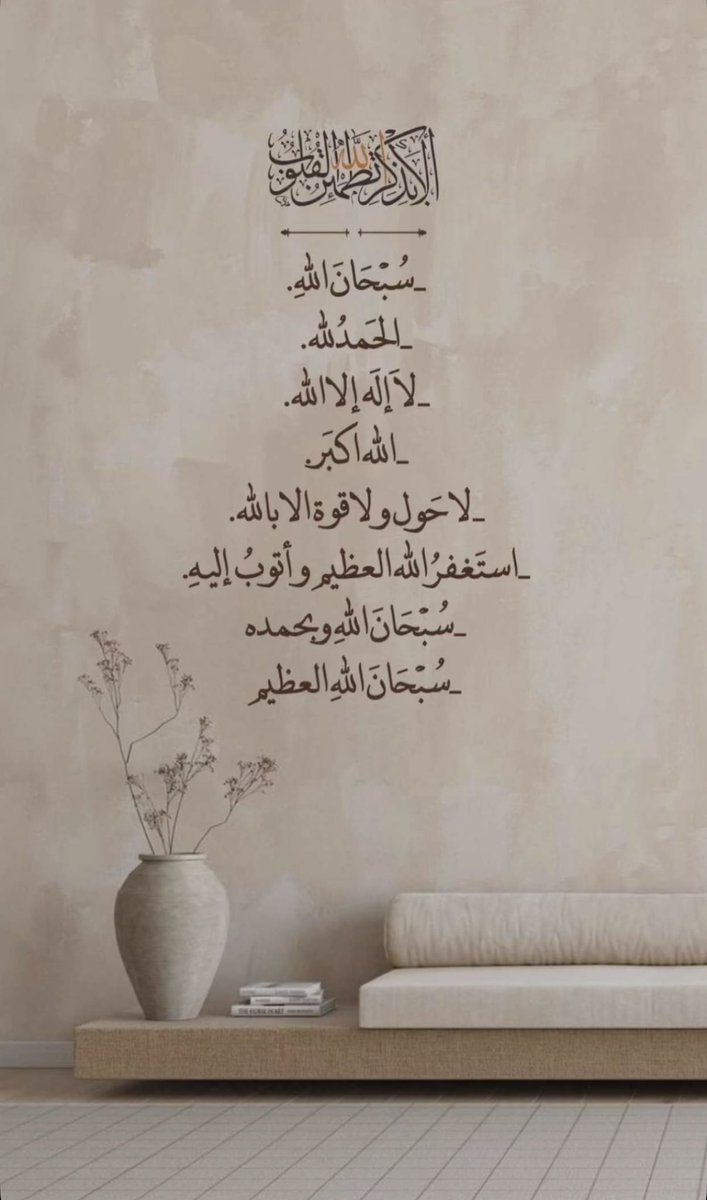 ألا بذكر الله تطمئن القلوب
ـسُبْحَانَ اللهِ.
ـالحَمدُلله.
ـلاَإلَه إلا الله.
ـالله اكبَر.
ـلا حَول ولا قوة الا بالله.
ـاستَغفرُ الله العظيم وأتوبُ إليهِ.
ـسُبْحَانَ اللهِ وبحمده
ـسُبْحَانَ اللهِ العظيم
THE HORSE IN ART